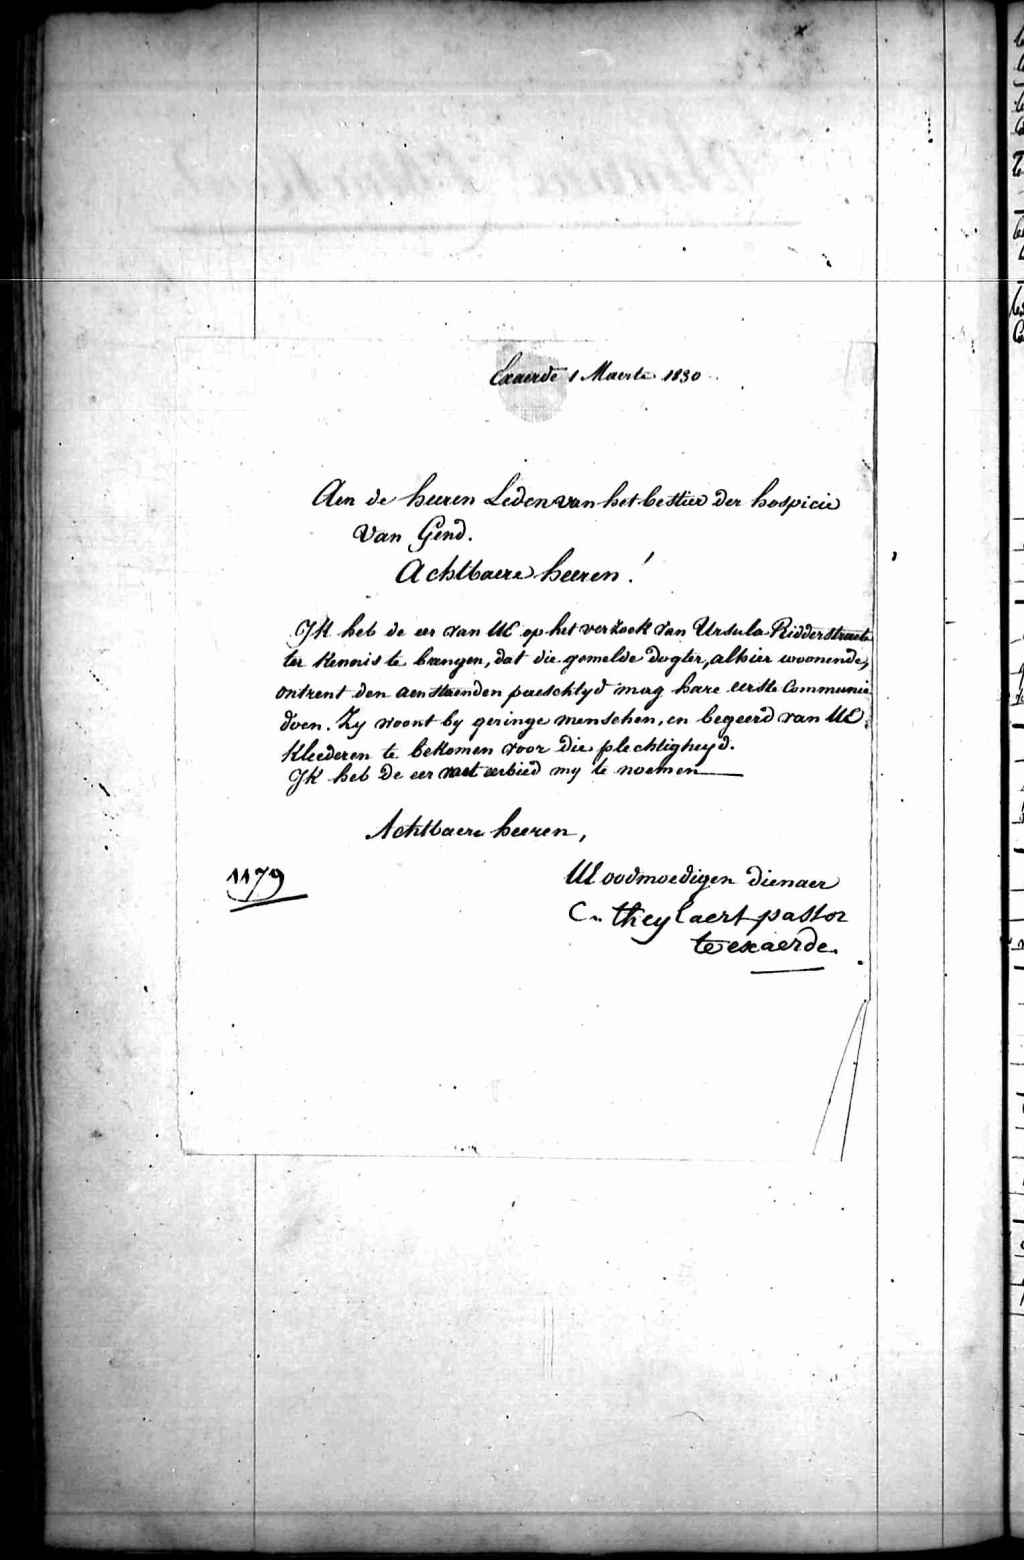 Exaerde 1 Maerte 1830
Aen de heeren Leden van het bestier der hospicie
Van Gend.
Achtbaere heeren!
Ik heb de eer van UE op het verzoek van Ursula Ridderstraete
ter kennis te brengen, dat die gemelde dogter, alhier woonende,
ontrent den aenstaenden paeschtyd mag hare eerste Communie
doen. Zy woont by geringe menschen, en begeerd van UE
kleederen te bekomen voor die plechtigheyd.
Ik heb de eer met eerbied my te noemen
Achtbaere heeren,
1179
UE oodmoedigen dienaer
C. theylaert pastor
te exaerde.